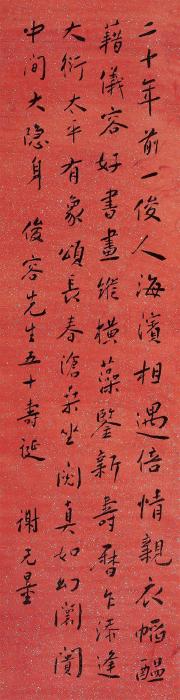 二十年前一俊人海濱相遇倍情親衣幍醖
藉儀容好書畫縱橫藻鑒新壽曆乍添逢
大衍太平有象頌長春滄桑坐閱真如幻闤闠
中間大隐身 俊容先生五十壽誕 謝无量